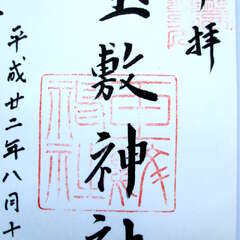 拝
玉敷神社
平成廿二年八月十